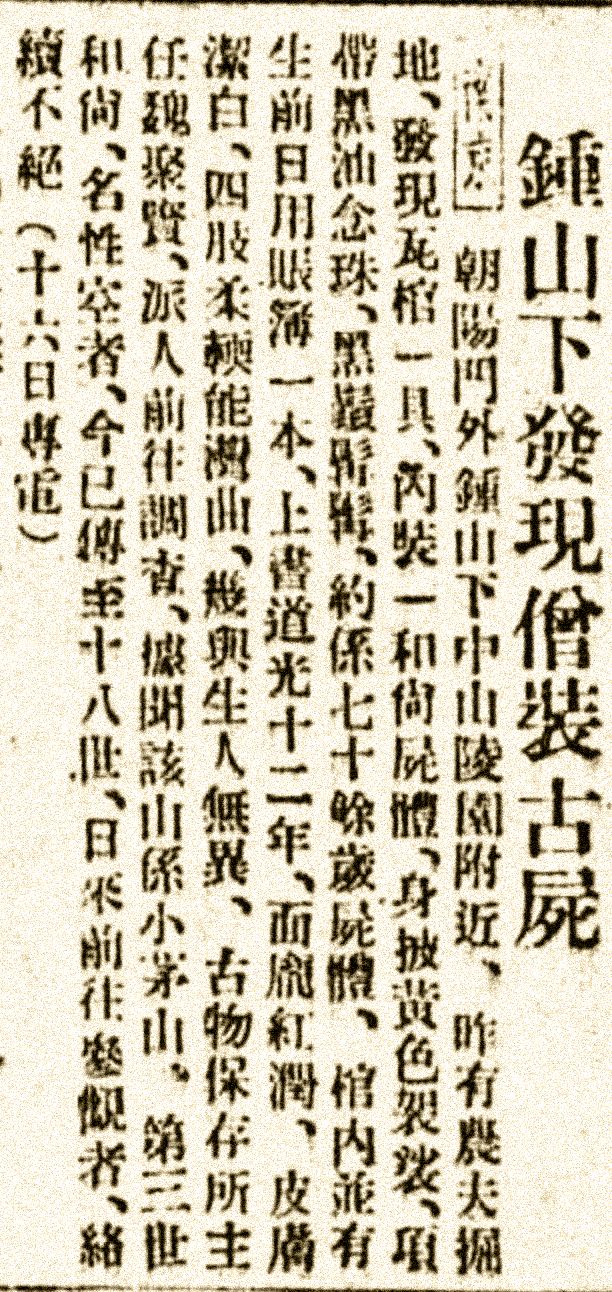 鍾山下發現僧裝古屍
南京 朝陽門外鍾山下中山陵園附近、昨有農夫掘
地、發現瓦棺一具、內裝一和尙屍體、身披黃色袈裟、項
偕黑油念珠、黑鬚髼髼、約係七十餘歲屍體、棺內並有
生前日用賬簿一本、上書道光十二年、面龐紅潤、皮膚
潔白、四肢柔輭能灣曲、幾與生人無異、古物保存所主
任魏聚賢、派人前往調查、據聞該山係小茅山、第三世
和尙、名性空者、今已傳至十八世、日來前往參觀者、絡
續不絕（十六日專電）